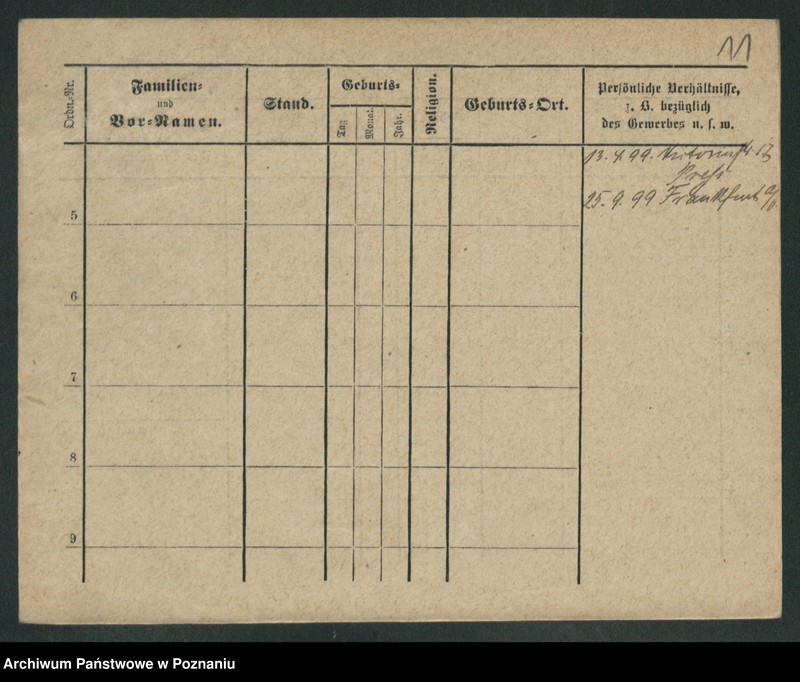 11
Ordn.-Nr.
Familien-
und
Vor-Namen.
Stand.
Geburts-
Tag
Monat.
Jahr.
Religion.
Geburts-Ort.
Persönliche Verhältnisse,
z. B. bezüglich
des Gewerbes u. s. w.
13. 4. 99.
25. 9. 99 Frankfurt a/
5
6
7
8
9
Archiwum Państwowe w Poznaniu